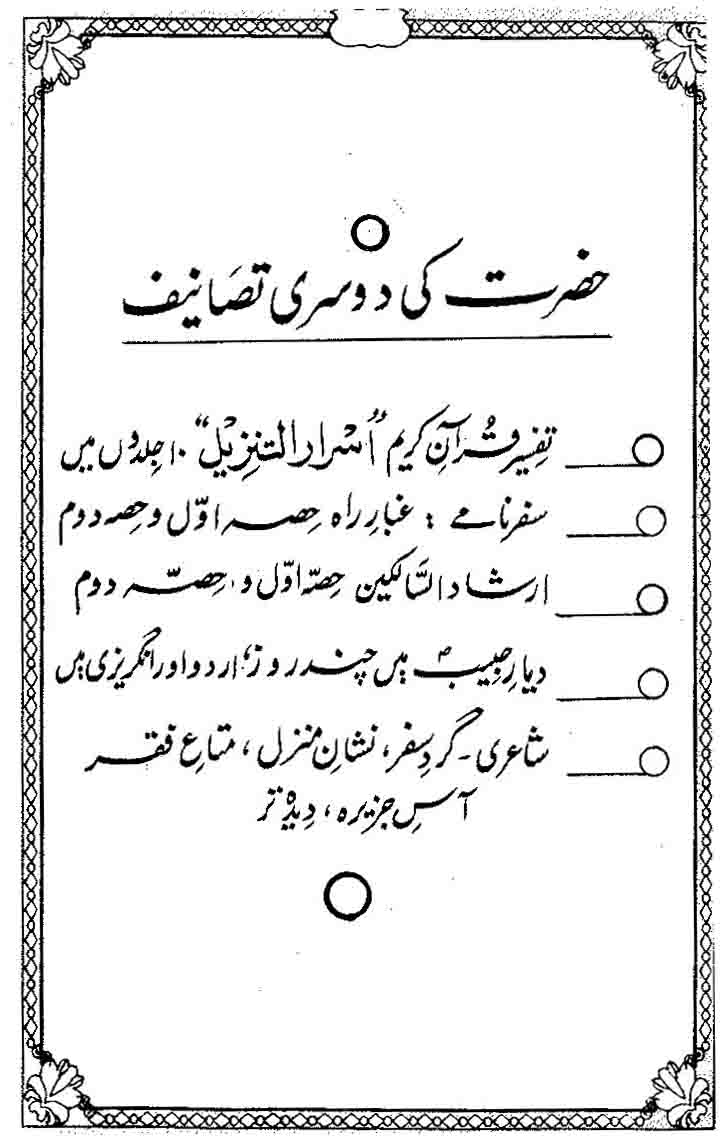 حضرت کی دوسری تصانیف
تفسیر قرآنِ کریم "اَسْرار التنزیل" ۱۰ جلدوں میں
سفرنامے : غبارِ راہ حصہ اوّل و حصہ دوم
ارشاد السَّالکین حصّہ اوّل و حصّہ دوم
دیارِ حبیبؐ میں چند روز، اردو اور انگریزی میں
شاعری۔ گردِ سفر، نشانِ منزل، متاعِ فقر
آس جزیرہ، دیدۂ تر